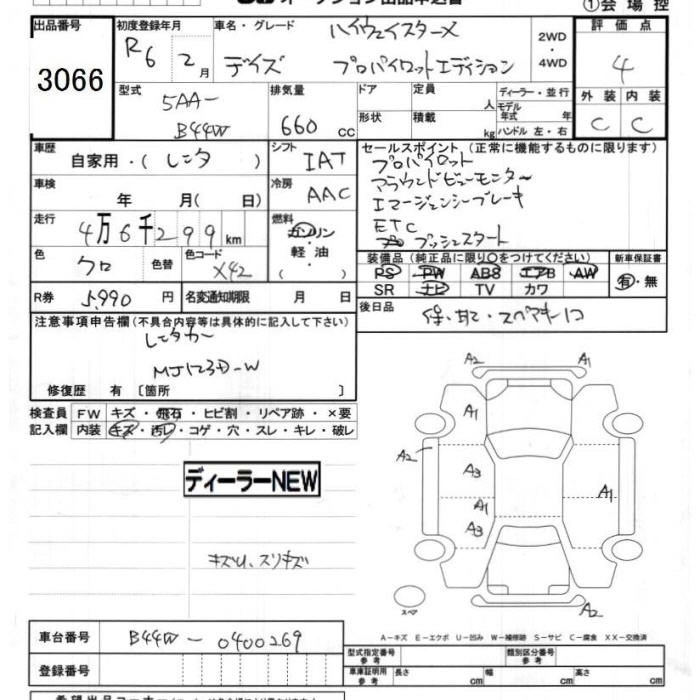 ①会場控
出品番号 3066
初度登録年月 R6 2月
車名・グレード ハイウェイスターX
デイズ プロパイロットエディション
2WD
・
4WD
評価点 4
外装 内装
C C
型式 5AA-
B44W
排気量 660 cc
ドア 定員 人
形状 積載 kg
ディーラー・並行
モデル年式 年
ハンドル 左・右
車歴 自家用・(レンタ)
シフト IAT
車検 年 月(日)
冷房 AAC
走行 4万6千299km
燃料 ガソリン
軽油
( ・ )
色 クロ 色替
色コード X42
R券 5,990円
名変通知期限 月 日
セールスポイント (正常に機能するものに限ります)
プロパイロット
アラウンドビューモニター
エマージェンシーブレーキ
ETC
プッシュスタート
装備品 (純正品に限り○をつけてください)
新車保証書
PS PW ABS エアB AW
SR ナビ TV カワ
有・無
後日品 保・取・スペアキー1コ
注意事項申告欄(不具合内容等は具体的に記入して下さい)
レンタカー
MJ123D-W
修復歴 有 〔箇所 〕
検査員 FW キズ・飛石・ヒビ割・リペア跡・×要
記入欄 内装 キズ・汚レ・コゲ・穴・スレ・キレ・破レ
ディーラーNEW
キズU、スリキズ
A2 A1
A1
A2 A3
A1 A1
A3
スペア A2
A-キズ E-エクボ U-凹み W-補修跡 S-サビ C-腐食 XX-交換済
車台番号 B44W-0400269
登録番号
型式指定番号 参考
類別区分番号 参考
車庫証明用 参考 長さ cm 幅 cm 高さ cm